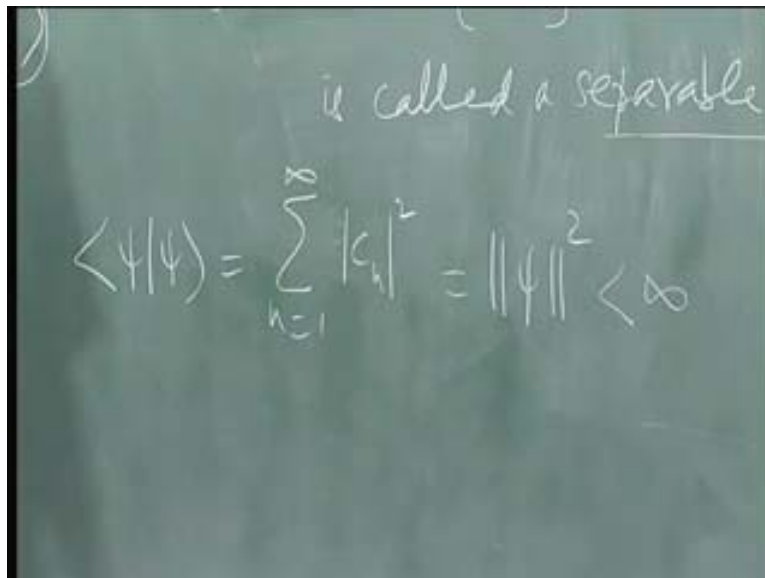 is called a separable
<ψ|ψ> = ∑_{n=1}^{∞} |c_n|² = ||ψ||² < ∞